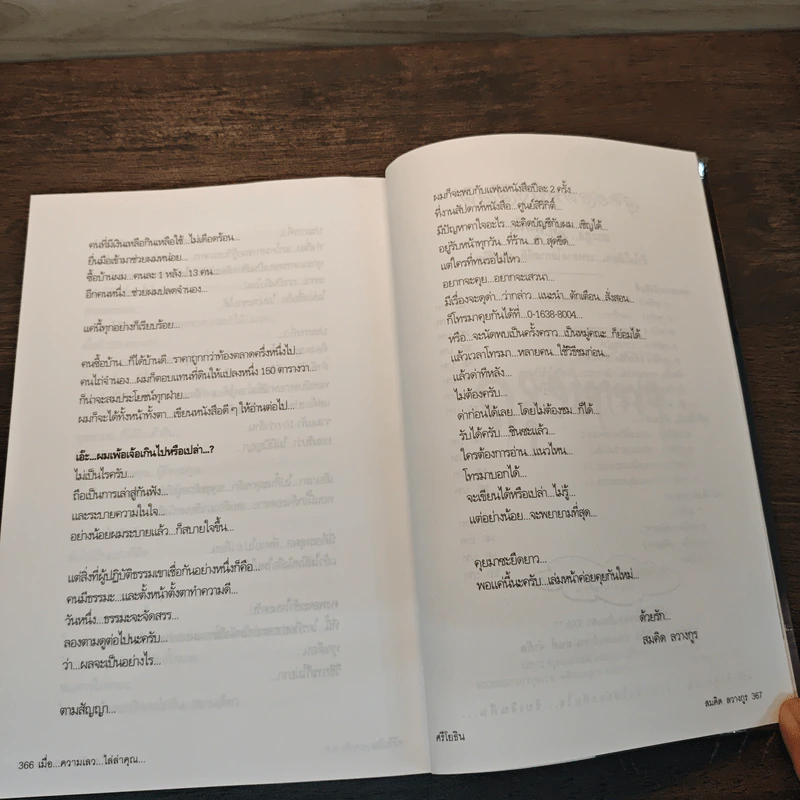 คนที่มีเงินเหลือกินเหลือใช้...ไม่เดือดร้อน...
ยื่นมือเข้ามาช่วยผมหน่อย...
ซื้อบ้านผม...คนละ 1 หลัง...13 คน...
อีกคนหนึ่ง...ช่วยผมปลดจำนอง...
แค่นี้ทุกอย่างก็เรียบร้อย...
คนซื้อบ้าน...ก็ได้บ้านดี...ราคาถูกกว่าท้องตลาดครึ่งหนึ่งไป...
คนไถ่จำนอง...ผมก็ตอบแทนที่ดินให้แปลงหนึ่ง 150 ตารางวา...
ก็น่าจะสมประโยชน์ทุกฝ่าย...
ผมก็จะได้ทั้งหน้าทั้งตา...เขียนหนังสือดี ๆ ให้อ่านต่อไป...
เอ๊ะ...ผมเพ้อเจ้อเกินไปหรือเปล่า...?
ไม่เป็นไรครับ...
ถือเป็นการเล่าสู่กันฟัง...
และระบายความในใจ...
อย่างน้อยผมระบายแล้ว...ก็สบายใจขึ้น...
แต่สิ่งที่ผู้ปฏิบัติธรรมเขาเชื่อกันอย่างหนึ่งก็คือ...
คนมีธรรมะ...และตั้งหน้าตั้งตาทำความดี...
วันหนึ่ง...ธรรมะจะจัดสรร...
ลองตามดูต่อไปนะครับ...
ว่า...ผลจะเป็นอย่างไร...
ตามสัญญา...
366 เมื่อ...ความเลว...ไล่ล่าคุณ...
ผมก็จะพบกับแฟนหนังสือปีละ 2 ครั้ง...
ที่งานสัปดาห์หนังสือ...ศูนย์สิริกิติ์...
มีปัญหาคาใจอะไร...จะคิดบัญชีกับผม...เชิญได้...
อยู่รับหน้าทุกวัน...ที่ร้าน...ฮา..สุดขีด...
แต่ใครที่ทนรอไม่ไหว...
อยากจะคุย...อยากจะเสวนา...
มีเรื่องจะดุด่า...ว่ากล่าว...แนะนำ...ตักเตือน...สั่งสอน...
ก็โทรมาคุยกันได้ที่...0-1638-8004...
หรือ...จะนัดพบเป็นครั้งคราว...เป็นหมู่คณะ...ก็ย่อมได้...
แล้วเวลาโทรมา...หลายคน...ใช้วิธีชมก่อน...
แล้วด่าทีหลัง...
ไม่ต้องครับ...
ด่าก่อนได้เลย...โดยไม่ต้องชม...ก็ได้...
รับได้ครับ...ชินซะแล้ว...
ใครต้องการอ่าน...แนวไหน...
โทรมาบอกได้...
จะเขียนได้หรือเปล่า...ไม่รู้...
แต่อย่างน้อย...จะพยายามที่สุด...
คุยมาซะยืดยาว...
พอแค่นี้นะครับ...เล่มหน้าค่อยคุยกันใหม่...
ด้วยรัก...
สมคิด ลวางกูร
ศรีโยธิน
สมคิด ลวางกูร 367